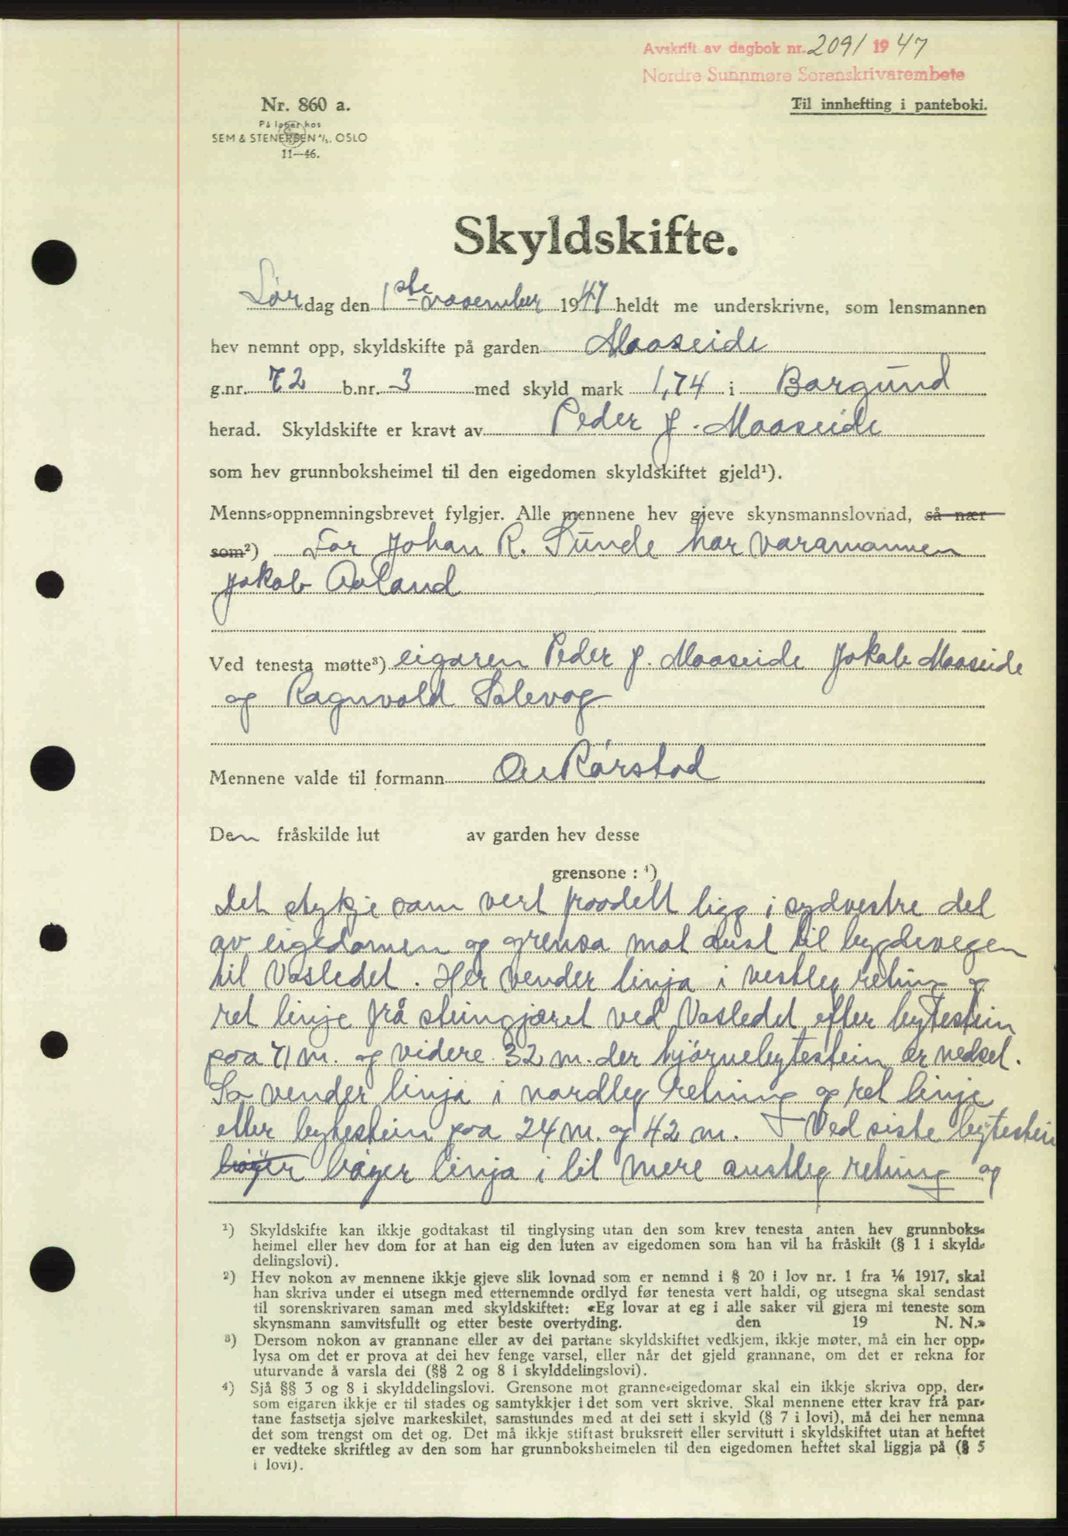 Avskrift av dagbok nr. 2091 1947
Nordre Sunnmøre Sorenskrivarembete
Til innhefting i panteboki.
Nr. 860 a.
På lager hos
SEM & STENERSEN A/S, OSLO
11—46.
Skyldskifte.
Lørdag den 1ste november 1947 heldt me underskrivne, som lensmannen
hev nemnt opp, skyldskifte på garden Maaseide
g.nr. 72 b.nr. 3 med skyld mark 1,74 i Borgund
herad. Skyldskifte er kravt av Peder J. Maaseide
som hev grunnboksheimel til den eigedomen skyldskiftet gjeld¹).
Menns-oppnemningsbrevet fylgjer. Alle mennene hev gjeve skynsmannslovnad, så nær
som²) For Johan R. Sunde har varamannen
Jakob Aaland
Ved tenesta møtte³) eigaren Peder J. Maaseide Jakob Maaseide
og Ragnvald Solevog
Mennene valde til formann Ole Rørstad
Den fråskilde lut av garden hev desse
grensone : ⁴)
Det stykje som vert fraadelt ligg i sydvestre del
av eigedomen og grensa mot aust til bygdevegen
til Vasledet. Her vender linja i vestleg retning og
ret linje frå steingjæret ved Vasledet efter bytestein
paa 71 m. og videre 32 m. der hjørnebytestein er nedset.
Så vender linja i nordleg retning og ret linje
etter bytestein paa 24 m. og 42 m. Ved siste bytestein
bøyer bøyer linja i lit mere austleg retning og
¹) Skyldskifte kan ikkje godtakast til tinglysing utan den som krev tenesta anten hev grunnboks-
heimel eller hev dom for at han eig den luten av eigedomen som han vil ha fråskilt (§ 1 i skyld-
delingslovi).
²) Hev nokon av mennene ikkje gjeve slik lovnad som er nemnd i § 20 i lov nr. 1 fra 1/6 1917, skal
han skriva under ei utsegn med etternemnde ordlyd før tenesta vert haldi, og utsegna skal sendast
til sorenskrivaren saman med skyldskiftet: «Eg lovar at eg i alle saker vil gjera mi teneste som
skynsmann samvitsfullt og etter beste overtyding. den 19 N. N.»
³) Dersom nokon av grannane eller av dei partane skyldskiftet vedkjem, ikkje møter, må ein her opp-
lysa om det er prova at dei hev fenge varsel, eller når det gjeld grannane, om det er rekna for
uturvande å varsla dei (§§ 2 og 8 i skylddelingslovi).
⁴) Sjå §§ 3 og 8 i skylddelingslovi. Grensone mot granne-eigedomar skal ein ikkje skriva opp, der-
som eigaren ikkje er til stades og samtykkjer i det som vert skrive. Skal mennene etter krav frå par-
tane fastsetja sjølve markeskilet, samstundes med at dei sett i skyld (§ 7 i lovi), må dei her nemna
det som trengst om det og. Det må ikkje stiftast bruksrett eller servitutt i skyldskiftet utan at heftet
er vedteke skriftleg av den som har grunnboksheimelen til den eigedomen heftet skal liggja på (§ 5
i lovi).